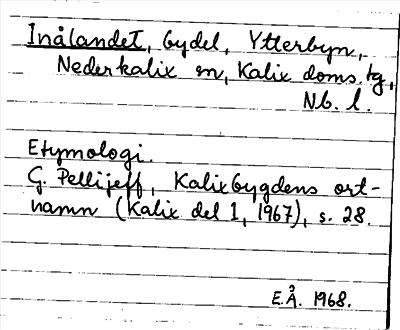 Inålandet, bydel, Ytterbyn,
Nederkalix sn, Kalix doms. tg,
Nb. l.
Etymologi.
G. Pellijeff, Kalixbygdens ort-
namn (Kalix del 1, 1967), s. 28.
E.Å. 1968.